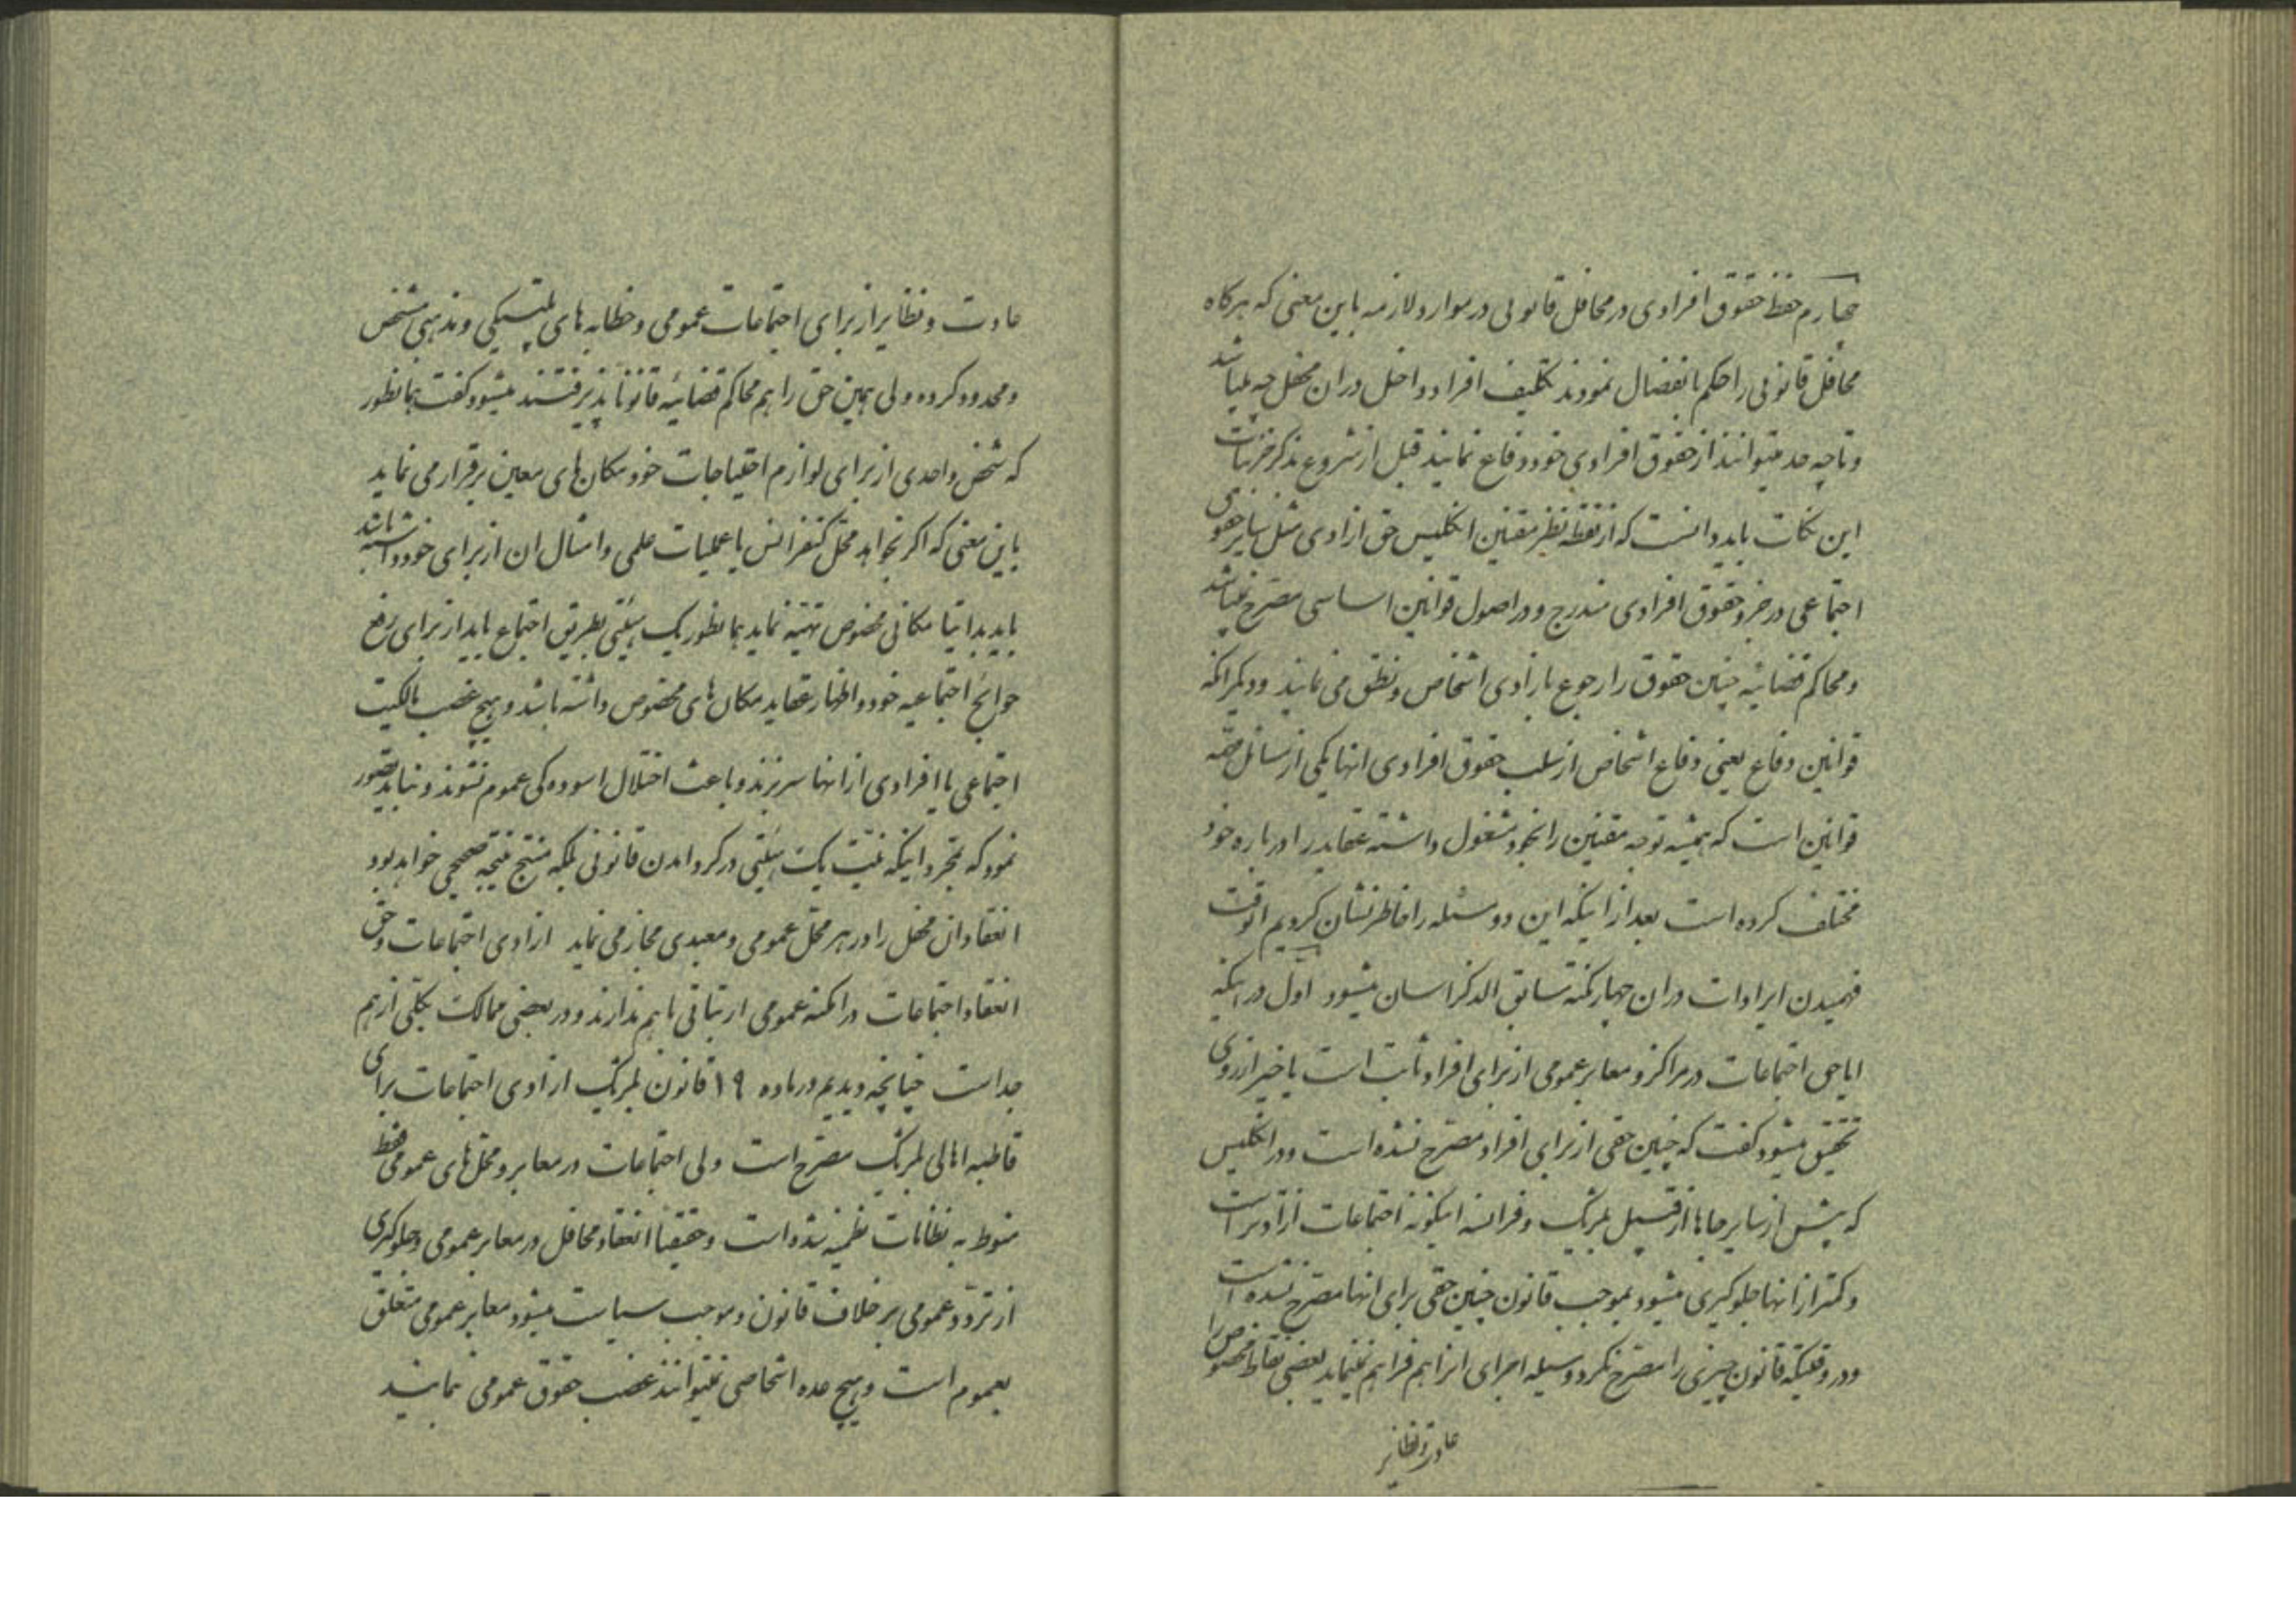 چهارم حفظ حقوق افرادی در محافل قانونی در موارد لازمه باین معنی که هرگاه
محافل قانونی را حکم بانفصال نمودند تکلیف افراد داخل در ان محفل چه میباشد
و تا چه حد میتوانند از حقوق افرادی خود دفاع نمایند قبل از شروع بذکر جزئیات
این نکات باید دانست که از نقطه نظر مقننین انگلیس حق ازادی مثل سایر حقوق
اجتماعی در جزو حقوق افرادی مندرج و در اصول قوانین اساسی مصرح نمیباشد
و محاکم قضائیه چنین حقوق را رجوع بازادی اشخاص و نطق می نمایند و دیگر انکه
قوانین دفاع یعنی دفاع اشخاص از سلب حقوق افرادی انها یکی از مسائل
قوانین است که همیشه توجه مقننین را بخود مشغول داشته عقاید را در باره خود
مختلف کرده است بعد از اینکه این دو مسئله را خاطر نشان کردیم انوقت
فهمیدن ایرادات در ان چهار نکته سابق الذکر اسان میشود اول در اینکه
ایا حق اجتماعات در مراکز و معابر عمومی از برای افراد ثابت است یا خیر از روی
تحقیق میشود گفت که چنین حقی از برای افراد مصرح نشده است و در انگلیس
که بیش از سایر جاها از قبیل بلژیک و فرانسه اینگونه اجتماعات ازادتر است
و کمتر از انها جلوگیری میشود بموجب قانون چنین حقی برای انها مصرح نشده است
و در وقتیکه قانون چیزی را مصرح نکرد وسیله اجرای انرا هم فراهم نمینماید بعضی نقاط مخصوص را
عادت و نظایر
عادت و نظایر از برای اجتماعات عمومی و خطابه های پلتیکی و مذهبی مشخص
و محدود کرده ولی همین حق را هم محاکم قضائیه قانوناً نپذیرفتند میشود گفت همانطور
که شخص واحدی از برای لوازم احتیاجات خود مکان های معین برقرار می نماید
باین معنی که اگر بخواهد محل کنفرانس یا عملیات علمی و امثال ان از برای خود داشته باشد
باید بدایتا مکانی مخصوص تهیه نماید همانطور یک هیئتی بطریق اجتماع باید از برای رفع
حوایج اجتماعیه خود و اظهار عقاید مکان های مخصوص داشته باشد و هیچ غصب مالکیت
اجتماعی یا افرادی از انها سر نزند و باعث اختلال اسوده گی عموم نشوند و نباید تصور
نمود که بمجرد اینکه نیت یک هیئتی در گرد امدن قانونی بلکه منتج نتیجه صحیحی خواهد بود
انعقاد ان محفل را در هر محل عمومی و معبدی مجاز می نماید ازادی اجتماعات و حق
انعقاد اجتماعات در امکنه عمومی ارتباطی با هم ندارند و در بعضی ممالک بکلی از هم
جداست چنانچه دیدیم در ماده ۱۹ قانون بلژیک ازادی اجتماعات برای
قاطبه اهالی بلژیک مصرح است ولی اجتماعات در معابر و محل های عمومی فقط
منوط به نظامات نظمیه شده است و حقیقتاً انعقاد محافل در معابر عمومی و جلوگیری
از تردد عمومی بر خلاف قانون و موجب سیاست میشود معابر عمومی متعلق
بعموم است و هیچ عده اشخاصی نمیتوانند غصب حقوق عمومی نمایند